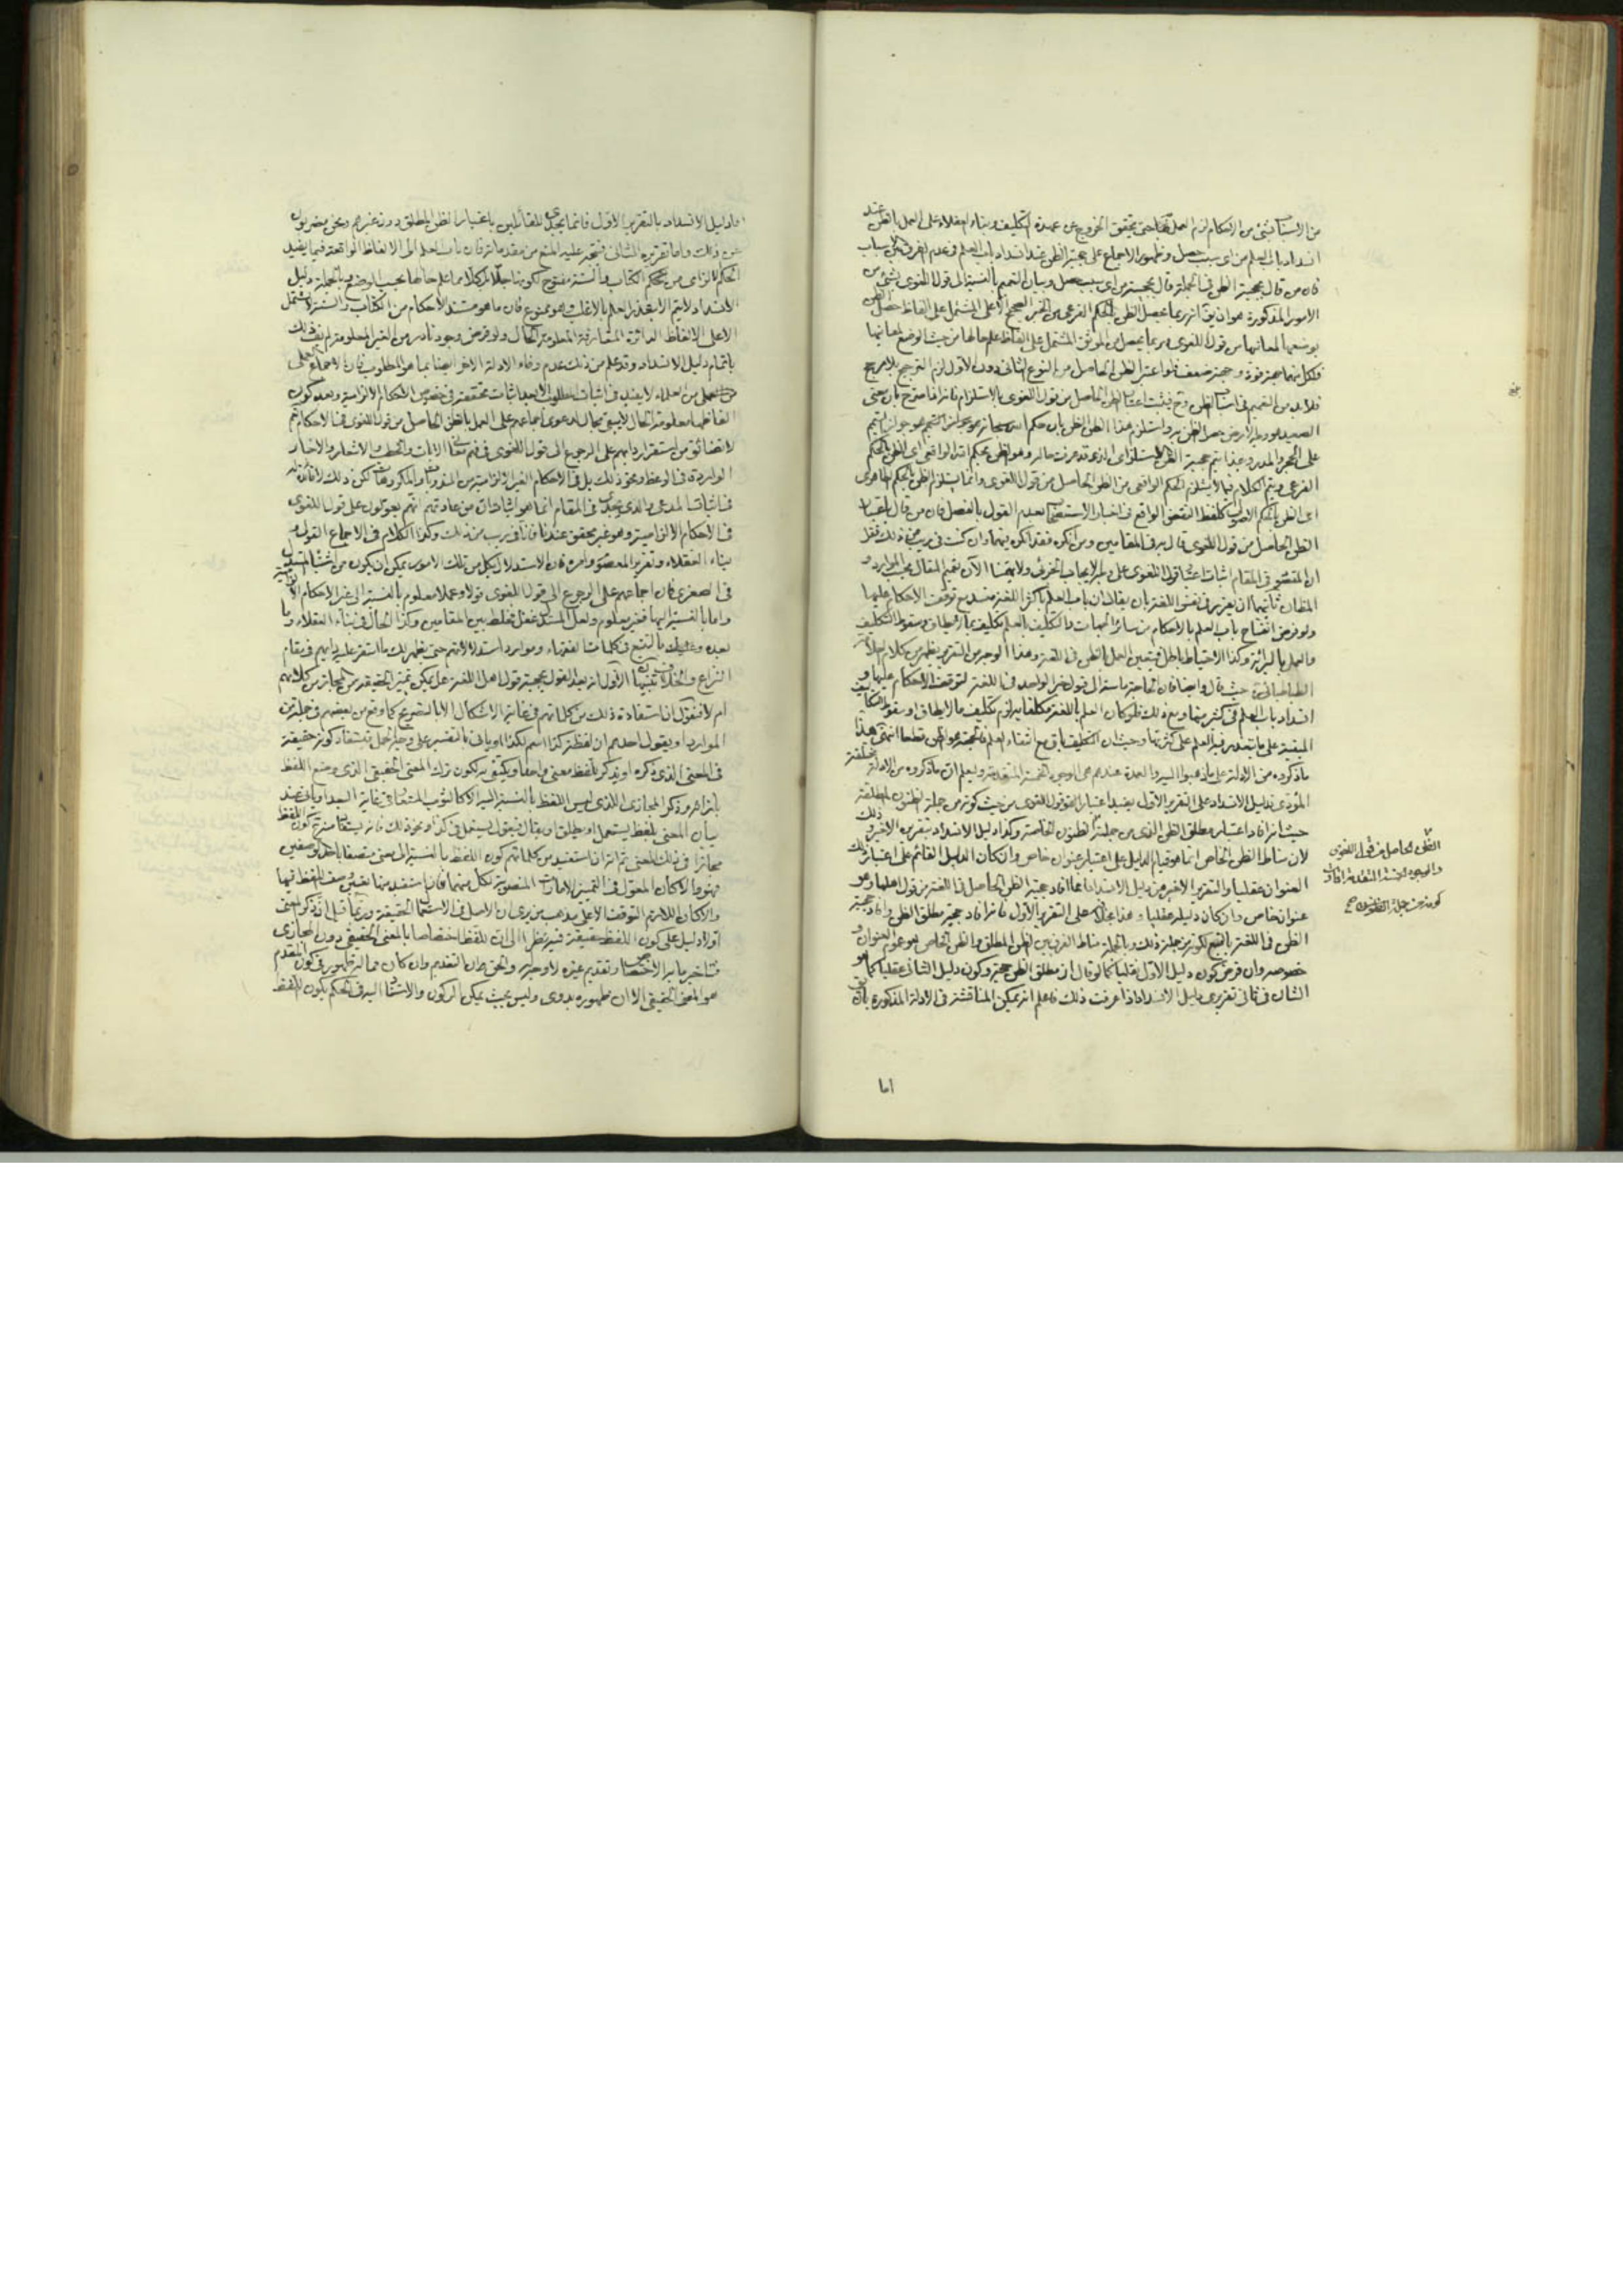 من الاسباب شئ من الاحكام لزم العمل به حتى يتحقق الخروج عن عهدة التكليف وبناء العقلاء على العمل بالظن عند
انسداد باب العلم من اى سبب حصل وظهور الاجماع على حجية الظن عند انسداد باب العلم وعدم الفرق بين اسباب
فان من قال بحجية الظن فى الجملة قال بحجيته من اى سبب حصل وبيان التعميم بالنسبة الى قول اللغوى بشئ من
الامور المذكورة هو ان يق انه ربما يحصل الظن بالحكم الفرعى من الخبر الصحيح الاعلى المشتمل على الفاظ حصل الظن
بوضعها لمعانيها من قول اللغوى وربما يحصل من الموثق المشتمل على الفاظ علم حالها من حيث الوضع لمعانيها
فلكل منهما جهة قوة وجهة ضعف فلو اعتبر الظن الحاصل من النوع الثانى دون الاول لزم الترجيح بلا مرجح
فلا بد من التعميم فى اسباب الظن وح فيثبت اعتبار الظن الحاصل من قول اللغوى بالاستلزام فانه اذا صرح بان معنى
الصعيد هو وجه الارض حصل الظن به واستلزم هذا الظن الظن بان حكم الله سبحانه هو جواز التيمم
على الحجر والمدر وبهذا يتم حجية الظن
الفرعى ويتم الكلام فيما لا يستلزم الحكم الواقعى من الظن الحاصل من قول اللغوى وانما يستلزم الظن بالحكم الظاهرى
اعنى الظن بالحكم الاصولى كلفظ النقض الواقع فى اخبار الاستصحاب بعدم القول بالفصل فان من قال باعتبار
الظن الحاصل من قول اللغوى قال به فى المقامين ومن انكره فقد انكره فيهما وان كنت فى ريب من ذلك فقل
ان المقصود فى المقام اثبات اعتبار قول اللغوى على وجه الايجاب الجزئى ولا يهمنا الآن تعميم المقال بحسب الموارد و
المظان ثانيهما ان يقرر فى نفس اللغة بان يقال ان باب العلم باكثر اللغة منسد مع توقف الاحكام عليها
ولو فرض انفتاح باب العلم بالاحكام من سائر الجهات والتكليف بالعلم تكليف بما لا يطاق وسقوط التكليف
والعمل بالبرائة وكذا الاحتياط باطل فيتعين العمل بالظن فى اللغة وهذا الوجه من التقرير يظهر من كلام العلامة
الطباطبائى حيث قال وايضا فان الحاجة ماسة الى قبول خبر الواحد فى اللغة لتوقف الاحكام عليها و
انسداد باب العلم فى كثير منها ومع ذلك فلو كان العلم باللغة مكلفا به لزم تكليف ما لا يطاق او سقوط التكاليف
المبنية على ما يتعذر فيه العلم على كثرتها وحيث ان التكليف باق مع انتفاء العلم فالحجة هو الظن قطعا انتهى هذا
ما ذكروه من الادلة على ما ذهبوا اليه والعمدة عندهم هى الوجوه الخمسة المتقدمة وليعلم ان ما ذكروه من الادلة مختلفة
المؤدى فدليل الانسداد على التقرير الاول يفيد اعتبار قول اللغوى من حيث كونه من جملة الظنون المطلقة
حيث انه افاد اعتبار مطلق الظن الذى من جملته الظنون الخاصة وكذا دليل الانسداد بتقريره الاخير و ذلك
لان مناط الظن الخاص انما هو قيام الدليل على اعتباره بعنوان خاص وان كان الدليل القائم على اعتبار ذلك
العنوان عقليا والتقرير الاخير من دليل الانسداد انما افاد حجية الظن الحاصل فى اللغة من قول اهلها وهو
عنوان خاص وان كان دليله عقليا وهذا بخلاف على التقرير الاول فانه افاد حجية مطلق الظن وافاد حجية
الظن فى اللغة بالتبع لكونه من جملة ذلك وبالجملة مناط الفرق بين الظن المطلق والظن الخاص هو عموم العنوان و
خصوصه وان فرض كون دليل الاول نقليا كما لو قال ان مطلق الظن حجة وكون دليل الثانى عقليا كما هو
الشان فى ثانى تقريرى دليل الانسداد اذا عرفت ذلك فاعلم انه يمكن المناقشة فى الادلة المذكورة بان يق
الظن الحاصل من قول اللغوى
والوجوه الخمسة المتقدمة افادت
كونه من جملة الظنون صح
اما
اما دليل الانسداد بالتقرير الاول فانما يجدى للقائلين باعتبار الظن المطلق دون غيرهم ونحن معزولون
عن ذلك واما تقريره الثانى فيتجه عليه المنع من مقدماته فان باب العلم الى الالفاظ الواقعة فيما يفيد
الحكم الالزامى من محكم الكتاب والسنة مفتوح لكونها جلّا لو لا كلّا مما علم حالها بحسب الوضع وبالجملة دليل
الانسداد لا يتم الا بتعذر العلم بالاغلب وهو ممنوع فان ما هو مستند الاحكام من الكتاب والسنة لا يشتمل
الا على الالفاظ الدائرة المتعارفة المعلومة الحال ولو فرض وجود نادر من الغير المعلومة لم يف ذلك
باتمام دليل الانسداد وقد علم من ذلك عدم وفاء الادلة الاخر ايضا بما هو المطلوب فان الاجماع العملى
من العلماء لا يفيد فى اثبات المطلوب الا بعد اثبات تحققه فى خصوص الاحكام الالزامية وبعد كون
الفاظها معلومة الحال لا يبقى مجال لدعوى اجماعهم على العمل بالظن الحاصل من قول اللغوى فى الاحكام ثم
استقرار دابهم على الرجوع الى قول اللغوى فى فهم معانى الآيات والخطب والاشعار والاخبار
الواردة فى الوعظ ونحو ذلك بل فى الاحكام الغير الالزامية من المندوب والمكروه لكن ذلك لا فائدة له
فى اثبات المدعى والذى يجدى فى المقام انما هو اثبات ان من عادتهم انهم يعولون على قول اللغوى
فى الاحكام الالزامية وهو غير محقق عندنا فانا فى ريب من ذلك وكذا الكلام فى الاجماع القولى و
بناء العقلاء وتقرير المعصوم وامره فان الاستدلال بكل من تلك الامور يمكن ان يكون من اشتباه المستدل
فى الصغرى فان اجماعهم على الرجوع الى قول اللغوى قولا وعملا معلوم بالنسبة الى غير الاحكام الالزامية
واما بالنسبة اليها فغير معلوم ولعل المستدل غفل فخلط بين المقامين وكذا الحال فى بناء العقلاء وما
بعده وعليك بالتتبع فى كلمات الفقهاء وموارد استدلالاتهم حتى يظهر لك ما استقر عليه دابهم فى مقام
النزاع والخلاف تنبيهات الاول انه بعد القول بحجية قول اهل اللغة هل يمكن تميز الحقيقة من المجاز من كلامهم
ام لا فنقول ان استفادة ذلك من كلماتهم فى غاية الاشكال الا بالتصريح كما وقع من بعضهم فى جملة من
الموارد او بقول احدهم ان لفظة كذا اسم لكذا او ياتى بالتفسير على وجه الحمل فيستفاد كونه حقيقة
فى المعنى الذى ذكره او يذكر للفظ معنى واحدا ويكتفى به لكون ترك المعنى الحقيقى الذى وضع اللفظ
بازائه وذكر المجازى الذى ليس اللفظ بالنسبة اليه الا كالثوب المستعار فى غاية البعد او ياتى عند
بيان المعنى بلفظ يستعمل او يطلق او يقال فيقول يستعمل فى كذا او نحو ذلك فانه يستفاد منه كون اللفظ
مجازا فى ذلك المعنى ثم انه ان استفيد من كلماتهم كون اللفظ بالنسبة الى معنى متصفا باحد الوصفين
فهو والا كان المعول فى التميز الامارات المنصوبة لكل منهما فان استفيد منها تعيين وصف اللفظ فيها
والا كان اللازم التوقف الا على مذهب من يرى ان الاصل فى الاستعمال الحقيقة وربما قيل ان ذكر المعنى
اولا دليل على كون اللفظ حقيقة فيه نظرا الى ان للفظ اختصاصا بالمعنى الحقيقى دون المجازى
فتاخير ما به الاختصاص وتقديم غيره لا وجه له والحق ان التقديم وان كان مما له ظهور فى كون المقدم
هو المعنى الحقيقى الا ان ظهوره بدوى وليس بحيث يمكن الركون والاستناد اليه فى الحكم بكون اللفظ